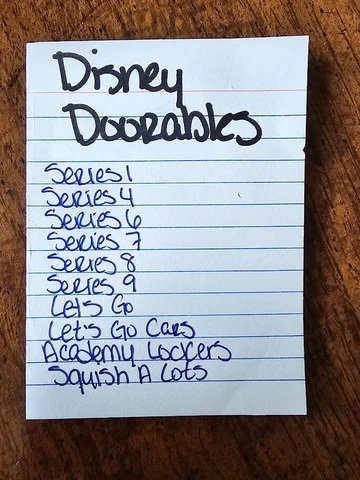 Disney
Doorables
Series 1
Series 4
Series 6
Series 7
Series 8
Series 9
Let's Go
Let's Go Cars
Academy Lockers
Squish A Lots